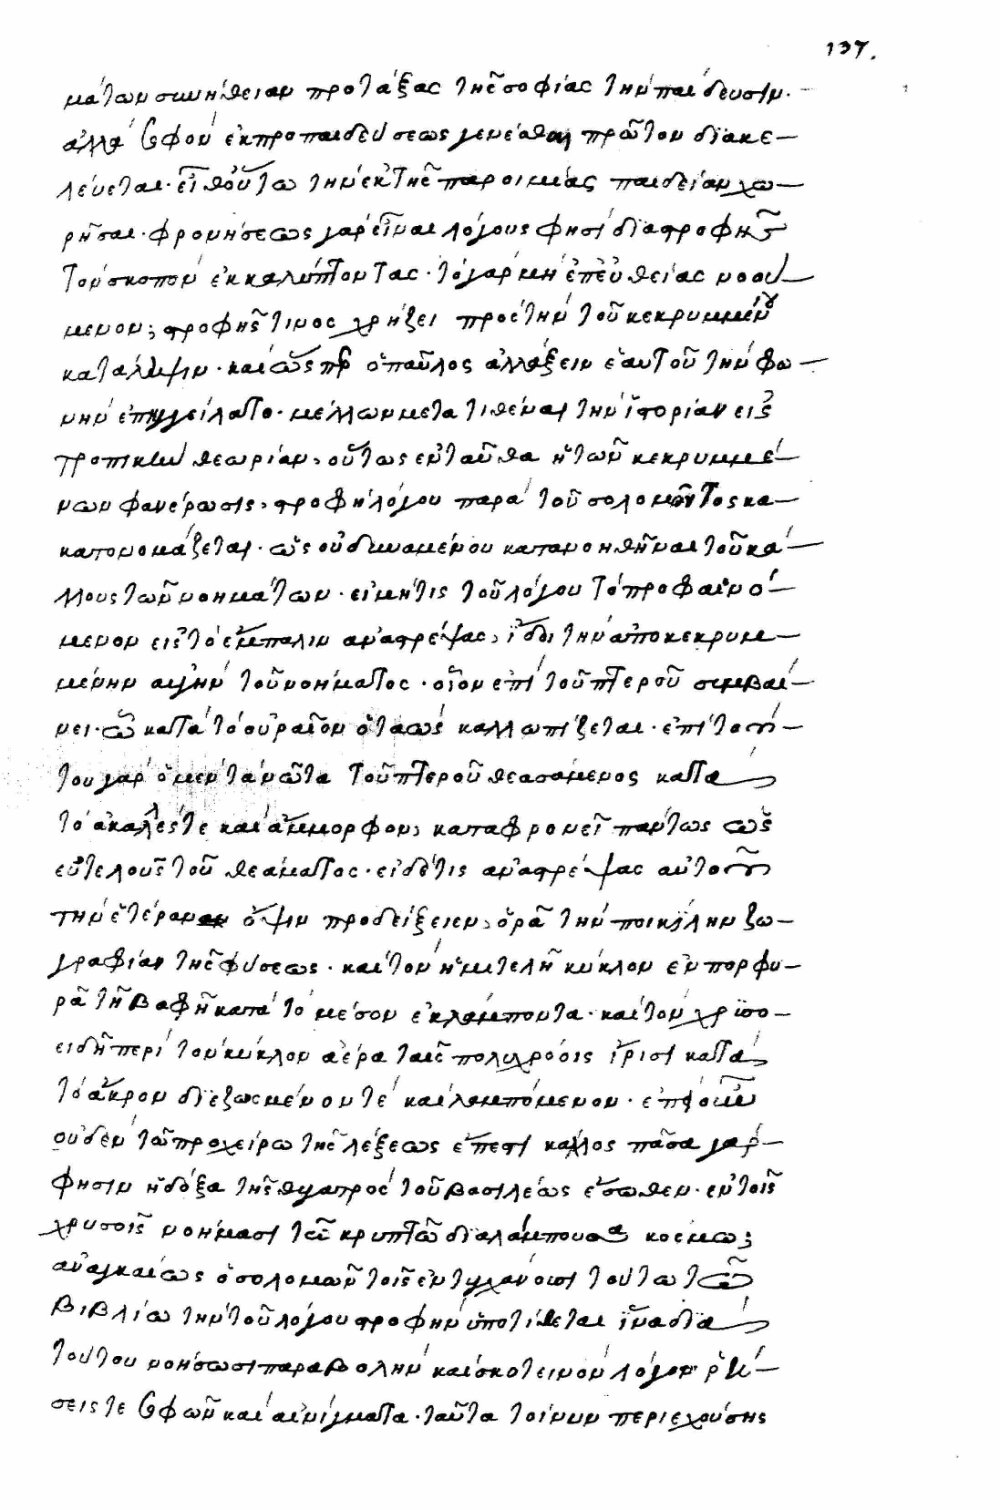 137.
μάτων συνήθειαν προτάξας τῆς σοφίας τὴν παίδευσιν·
ἀλλὰ σοφὸν ἐκ προπαιδεύσεως γενέσθαι πρῶτον διακε-
λεύεται· εἶθ' οὕτω τὴν ἐκ τῆς παροιμίας παιδείαν χω-
ρῆσαι· φρονήσεως γὰρ εἶναι λόγους φησὶ διαστροφῆς
τὸν σκοπὸν ἐκκαλύπτοντας· τὸ γὰρ μὴ ἐπ' εὐθείας νοού-
μενον, στροφῆς τινος χρῄζει πρὸς τὴν τοῦ κεκρυμμένου
κατάληψιν· καὶ ὥσπερ ὁ παῦλος ἀλλάξειν ἑαυτοῦ τὴν φω-
νὴν ἐπηγγείλατο· μέλλων μετατιθέναι τὴν ἱστορίαν εἰς
τροπικὴν θεωρίαν, οὕτως ἐνταῦθα ἡ τῶν κεκρυμμέ-
νων φανέρωσις, στροφὴ λόγου παρὰ τοῦ σολομῶντος κα-
κατονομάζεται· ὡς οὐ δυναμένου κατανοηθῆναι τοῦ κά-
λλους τῶν νοημάτων· εἰ μή τις τοῦ λόγου τὸ προφαινό-
μενον εἰς τὸ ἔμπαλιν ἀναστρέψας, ἴδοι τὴν ἀποκεκρυμ-
μένην αὐγὴν τοῦ νοήματος· οἷον ἐπὶ τοῦ πτεροῦ συμβαί-
νει· ᾧ κατὰ τὸ οὐραῖον ὁ ταὼς καλλωπίζεται· ἐπὶ τού-
του γὰρ ὁ μὲν τὰ νῶτα τοῦ πτεροῦ θεασάμενος κατὰ
τὸ ἀκαλλές τε καὶ ἄμορφον, καταφρονεῖ πάντως ὡς
εὐτελοῦς τοῦ θεάματος· εἰ δέ τις ἀναστρέψας αὐτοῦ
τὴν ἑτέραν ὄψιν προδείξειεν, ὁρᾷ τὴν ποικίλην ζω-
γραφίαν τῆς φύσεως· καὶ τὸν ἡμιτελῆ κύκλον ἐν πορφυ-
ρᾷ τῇ βαφῇ κατὰ τὸ μέσον ἐκλάμποντα· καὶ τὸν χρυσο-
ειδῆ περὶ τὸν κύκλον ἀέρα ταῖς πολυχρόοις ἴρισι κατὰ
τὸ ἄκρον διεζωσμένον τε καὶ λαμπόμενον· ἐπεὶ οὖν
οὐδὲν τῷ προχείρῳ τῆς λέξεως ἔπεστι κάλλος πᾶσα γὰρ
φησιν ἡ δόξα τῆς θυγατρὸς τοῦ βασιλέως ἔσωθεν· ἐν τοῖς
χρυσοῖς νοήμασι τῷ κρυπτῷ διαλάμπουσα κόσμῳ,
ἀναγκαίως ὁ σολομῶν τοῖς ἐντυγχάνουσι τούτῳ τῷ
βιβλίῳ τὴν τοῦ λόγου στροφὴν ὑποτίθεται ἵνα διὰ
τούτου νοήσωσι παραβολὴν καὶ σκοτεινὸν λόγον ῥή-
σεις τε σοφῶν καὶ αἰνίγματα· ταῦτα τοίνυν περιεχούσης